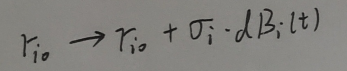 r_{i0} → r_{i0} + σ_i · dB_i(t)